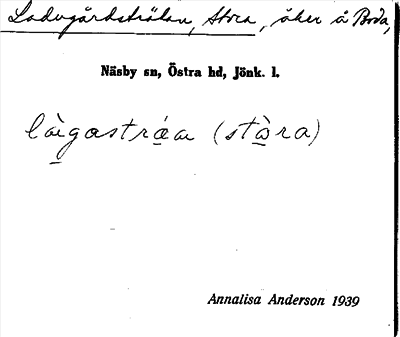 Ladugårdsträlan, Stora, åker å Boda,
Näsby sn, Östra hd, Jönk. l.
làgastráa (stàra)
Annalisa Anderson 1939